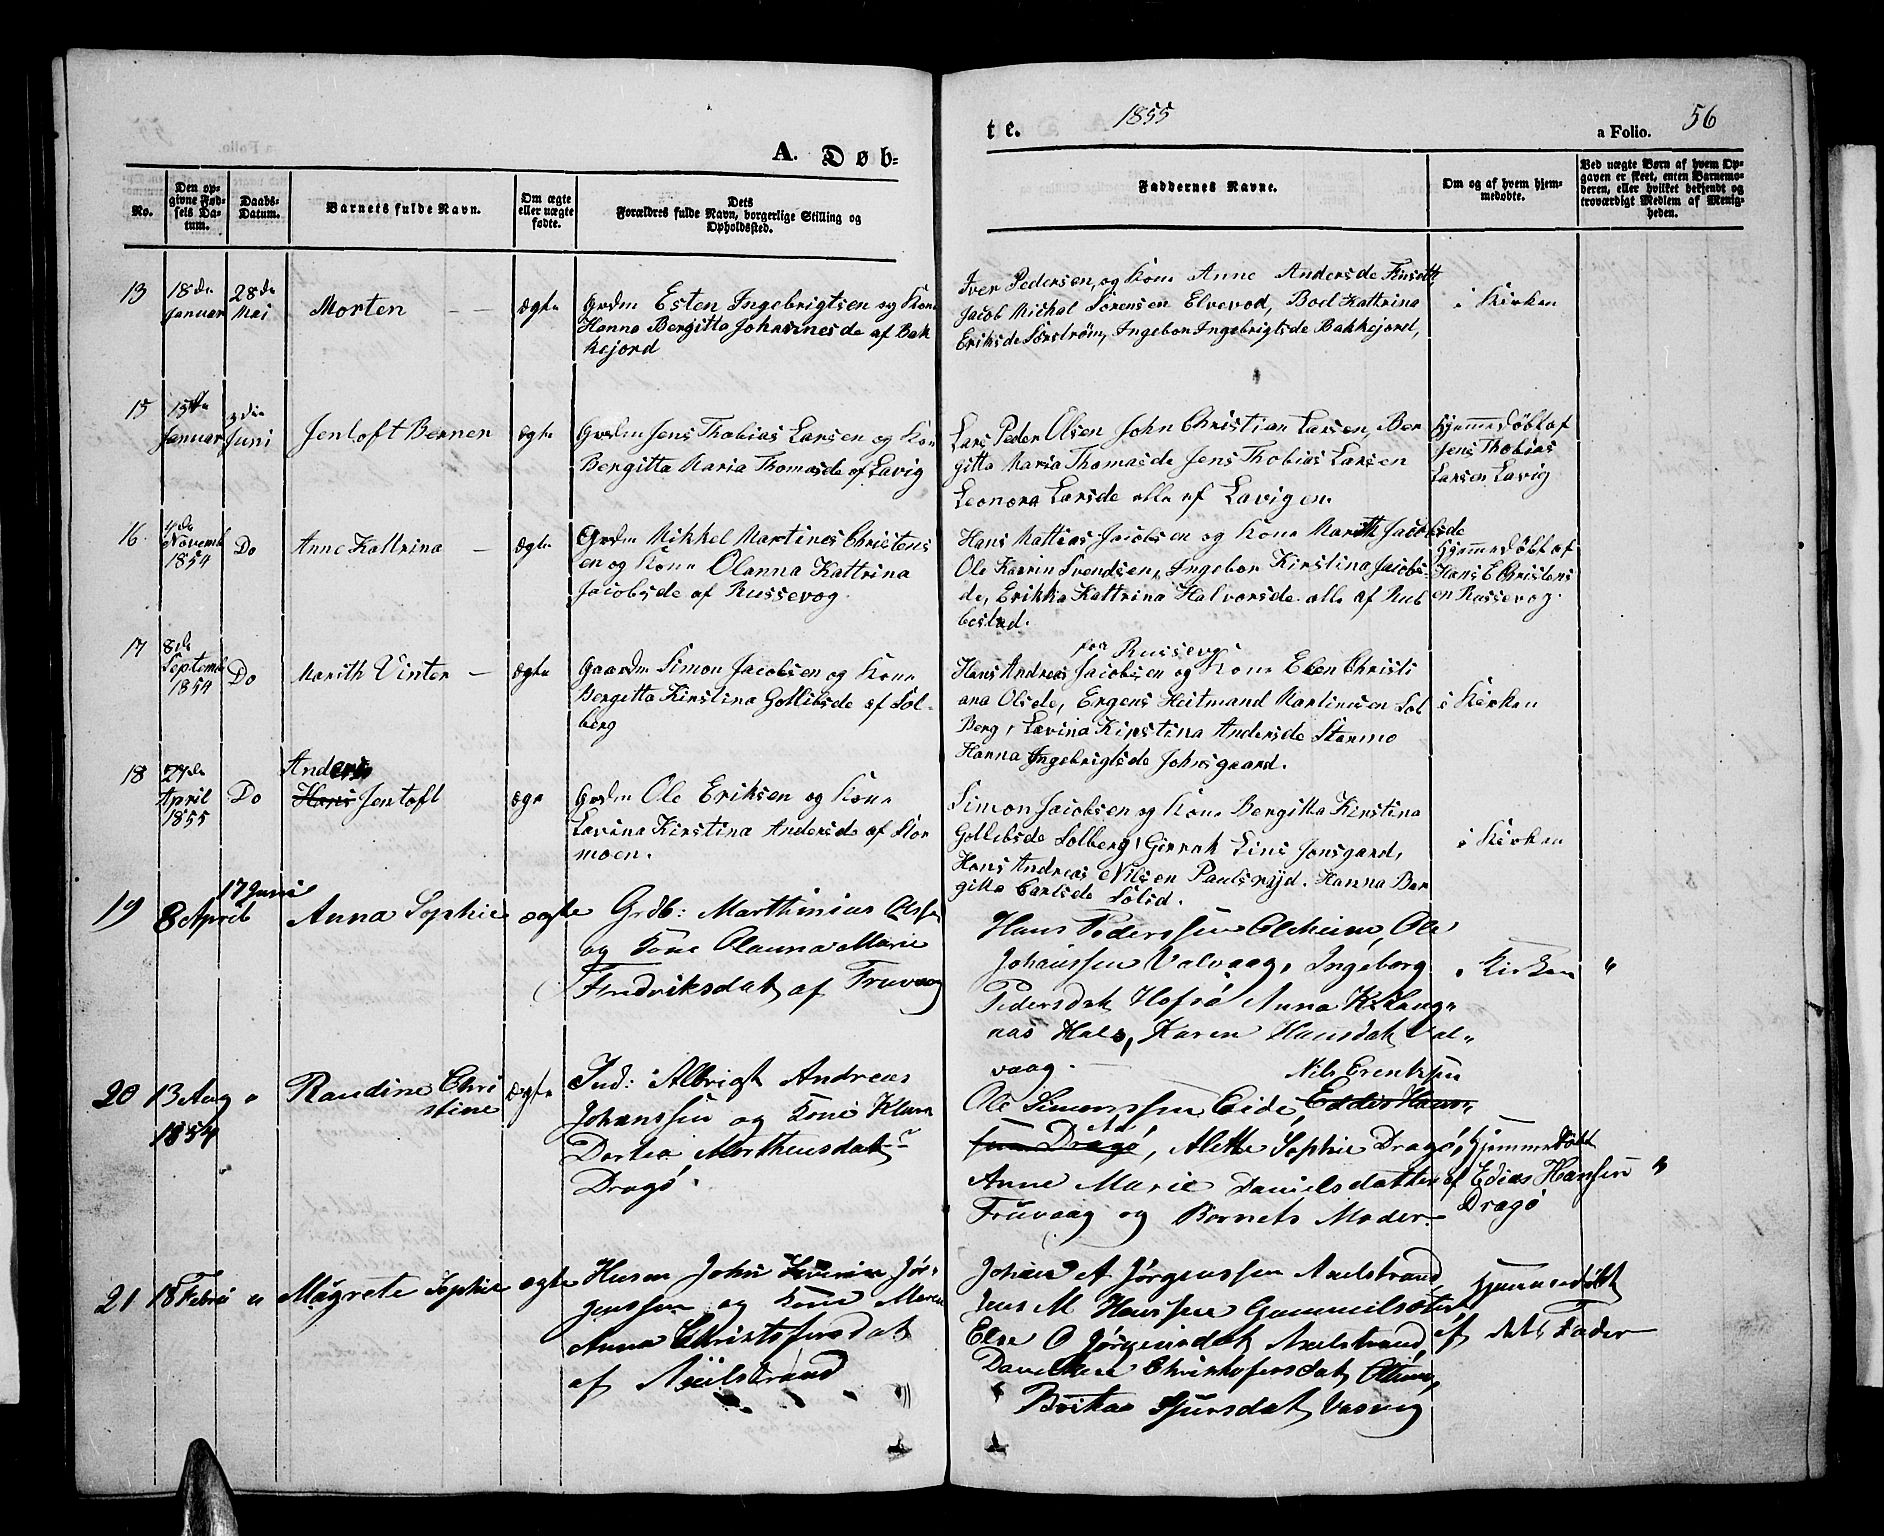 A. Døb=
te.
1855
a Folio. 56
No.
Den op-
givne Fød-
sels Da-
tum.
Daabs-
Datum.
Barnets fulde Navn.
Om ægte
eller uægte
fødte.
Dets
Forældres fulde Navn, borgerlige Stilling og
Opholdssted.
Faddernes Navne.
Om og af hvem hjem-
medøbte.
Ved uægte Børn af hvem Op-
gaven er skeet, enten Barnemo-
deren, eller hvilket bekjendt og
troværdigt Medlem af Menig-
heden.
13
18de
Januar
28de
Mai
Morten
ægte
Grdm Esten Ingebrigtsen og Kone
Hanna Bergitta Johannesde af Bak
kejord
Iver Pedersen, og Kone Anne Andersde
Jacob Michal Sørensen Elvevod, Bod Kattrina
Eriksde Sørstrøm, Ingebor Ingebrigtsde Bakkejord,
i Kirken
15
15de
Januar
3die
Juni
Jentoft Berner
ægte
Grdm Jens Thobias Larsen og Kone
Bergitta Maria Thomasde af Lavig
Lars Peder Olsen John Christian Larsen, Ber
gitta Maria Thomasde Jens Thobias Larsen
Leonora Larsde alle af Lavigen.
Hjemmedøbt af
Jens Thobias
Larsen Lavig
16
4de
Novemb
1854
Do
Anne Kattrina
ægte
Grdm Mikkel Martines Christens
en og Kone Olanna Kattrina
Jacobsde af Russevog.
Hans Mattias Jacobsen og Kone Marith Jacobsde
Ole Kasrin Svendsen, Ingebor Kirstina Jacobs-
de, Erikka Kattrina Halvorsde alle af Rub
bestad.
Hjemmedøbt af
Hans E Christens
en Russevog.
17
8de
Septemb
1854
Do
Marith Vinter
ægte
Gaardm Simon Jacobsen og Kone
Bergitta Kirstina Gollibsde af Sol-
berg
fra Russevog
Hans Andreas Jacobsen og Kone Elen Christi
ana Olsde, Ergens Heitmand Martinesen Sol
Berg, Lavina Kirstina Andersde Stormo
Hanna Ingebrigtsde Johnsgaard.
i Kirken
18
27de
April
1855
Do
Anders
Hans Jentoft
ægte
Grdm Ole Eriksen og Kone
Lavina Kirstina Andersde af Stor
moen.
Simon Jacobsen og Kone Bergitta Kirstina
Gollibsde Solberg, Lins Jonsgard,
Hans Andreas Nilsen Paulsryd. Hanna Ber
gitte Carlsde Solid.
i Kirken
19
8 April
17 Juni
Anna Sophie
ægte
Grdb: Marthinius Olsen
og Kone Olanna Marie
Fredriksdat af Fruvaag
Hans Pederssen Olsheim, Ole
Johanssen Valvaag, Ingeborg
Pedersdat Hofsø Anna K. Haug-
nas Hals, Karen Hansdat Val-
vaag.
i Kirken "
20
13 Aug
1854
"
Randine Chri
stine
ægte
Ind: Albrigt Andreas
Johanssen og Kone Klara
Dortea Morthensdat
Dragø.
Nils Erentsen
Ole Simonssen Eide, Eddis Hans-
sen Dragø, Alette Sophie Dragø,
Anne Marie Danielsdatter
Fruvaag og Barnets Moder
Hjemmedøbt
af Edias Hansen
Dragø
"
21
18 Febr
"
Magrete Sophie
ægte
Husm John Jør-
genssen og Kone Maren
Anna Christofersdat
af Axelstrand
Johan A Jørgenssen Axelstrand
Jens M Hanssen Gammelsæter
Else O Jørgensdat Axelstrand,
Christofersdat
Brita Sjursdat Vasvig
Hjemmedøbt
af dets Fader